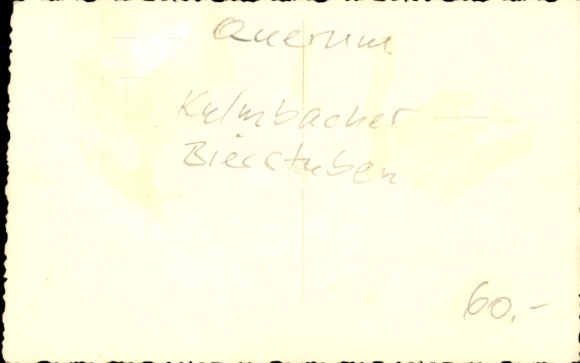 Querum
Kulmbacher
Bierstuben
60.-